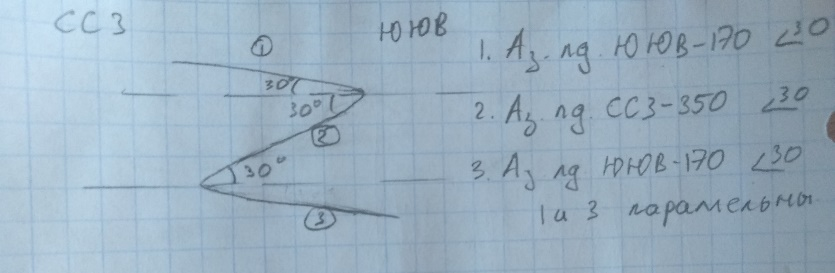 ССЗ
ЮЮВ
①
30°
30°
②
30°
③
1. Аз. пд. ЮЮВ-170 ∠30
2. Аз. пд. ССЗ-350 ∠30
3. Аз пд ЮЮВ-170 ∠30
1 и 3 парамельны